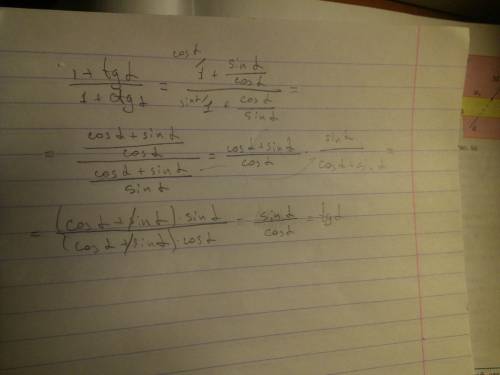 (1 + tg α)/(1 + ctg α) = (cos α/ 1 + sin α/cos α)/(sin α/ 1 + cos α/sin α) =
= ((cos α + sin α)/cos α)/((cos α + sin α)/sin α) = (cos α + sin α)/cos α · sin α/(cos α + sin α) =
= ((cos α + sin α) · sin α)/((cos α + sin α) · cos α) = sin α/cos α = tg α